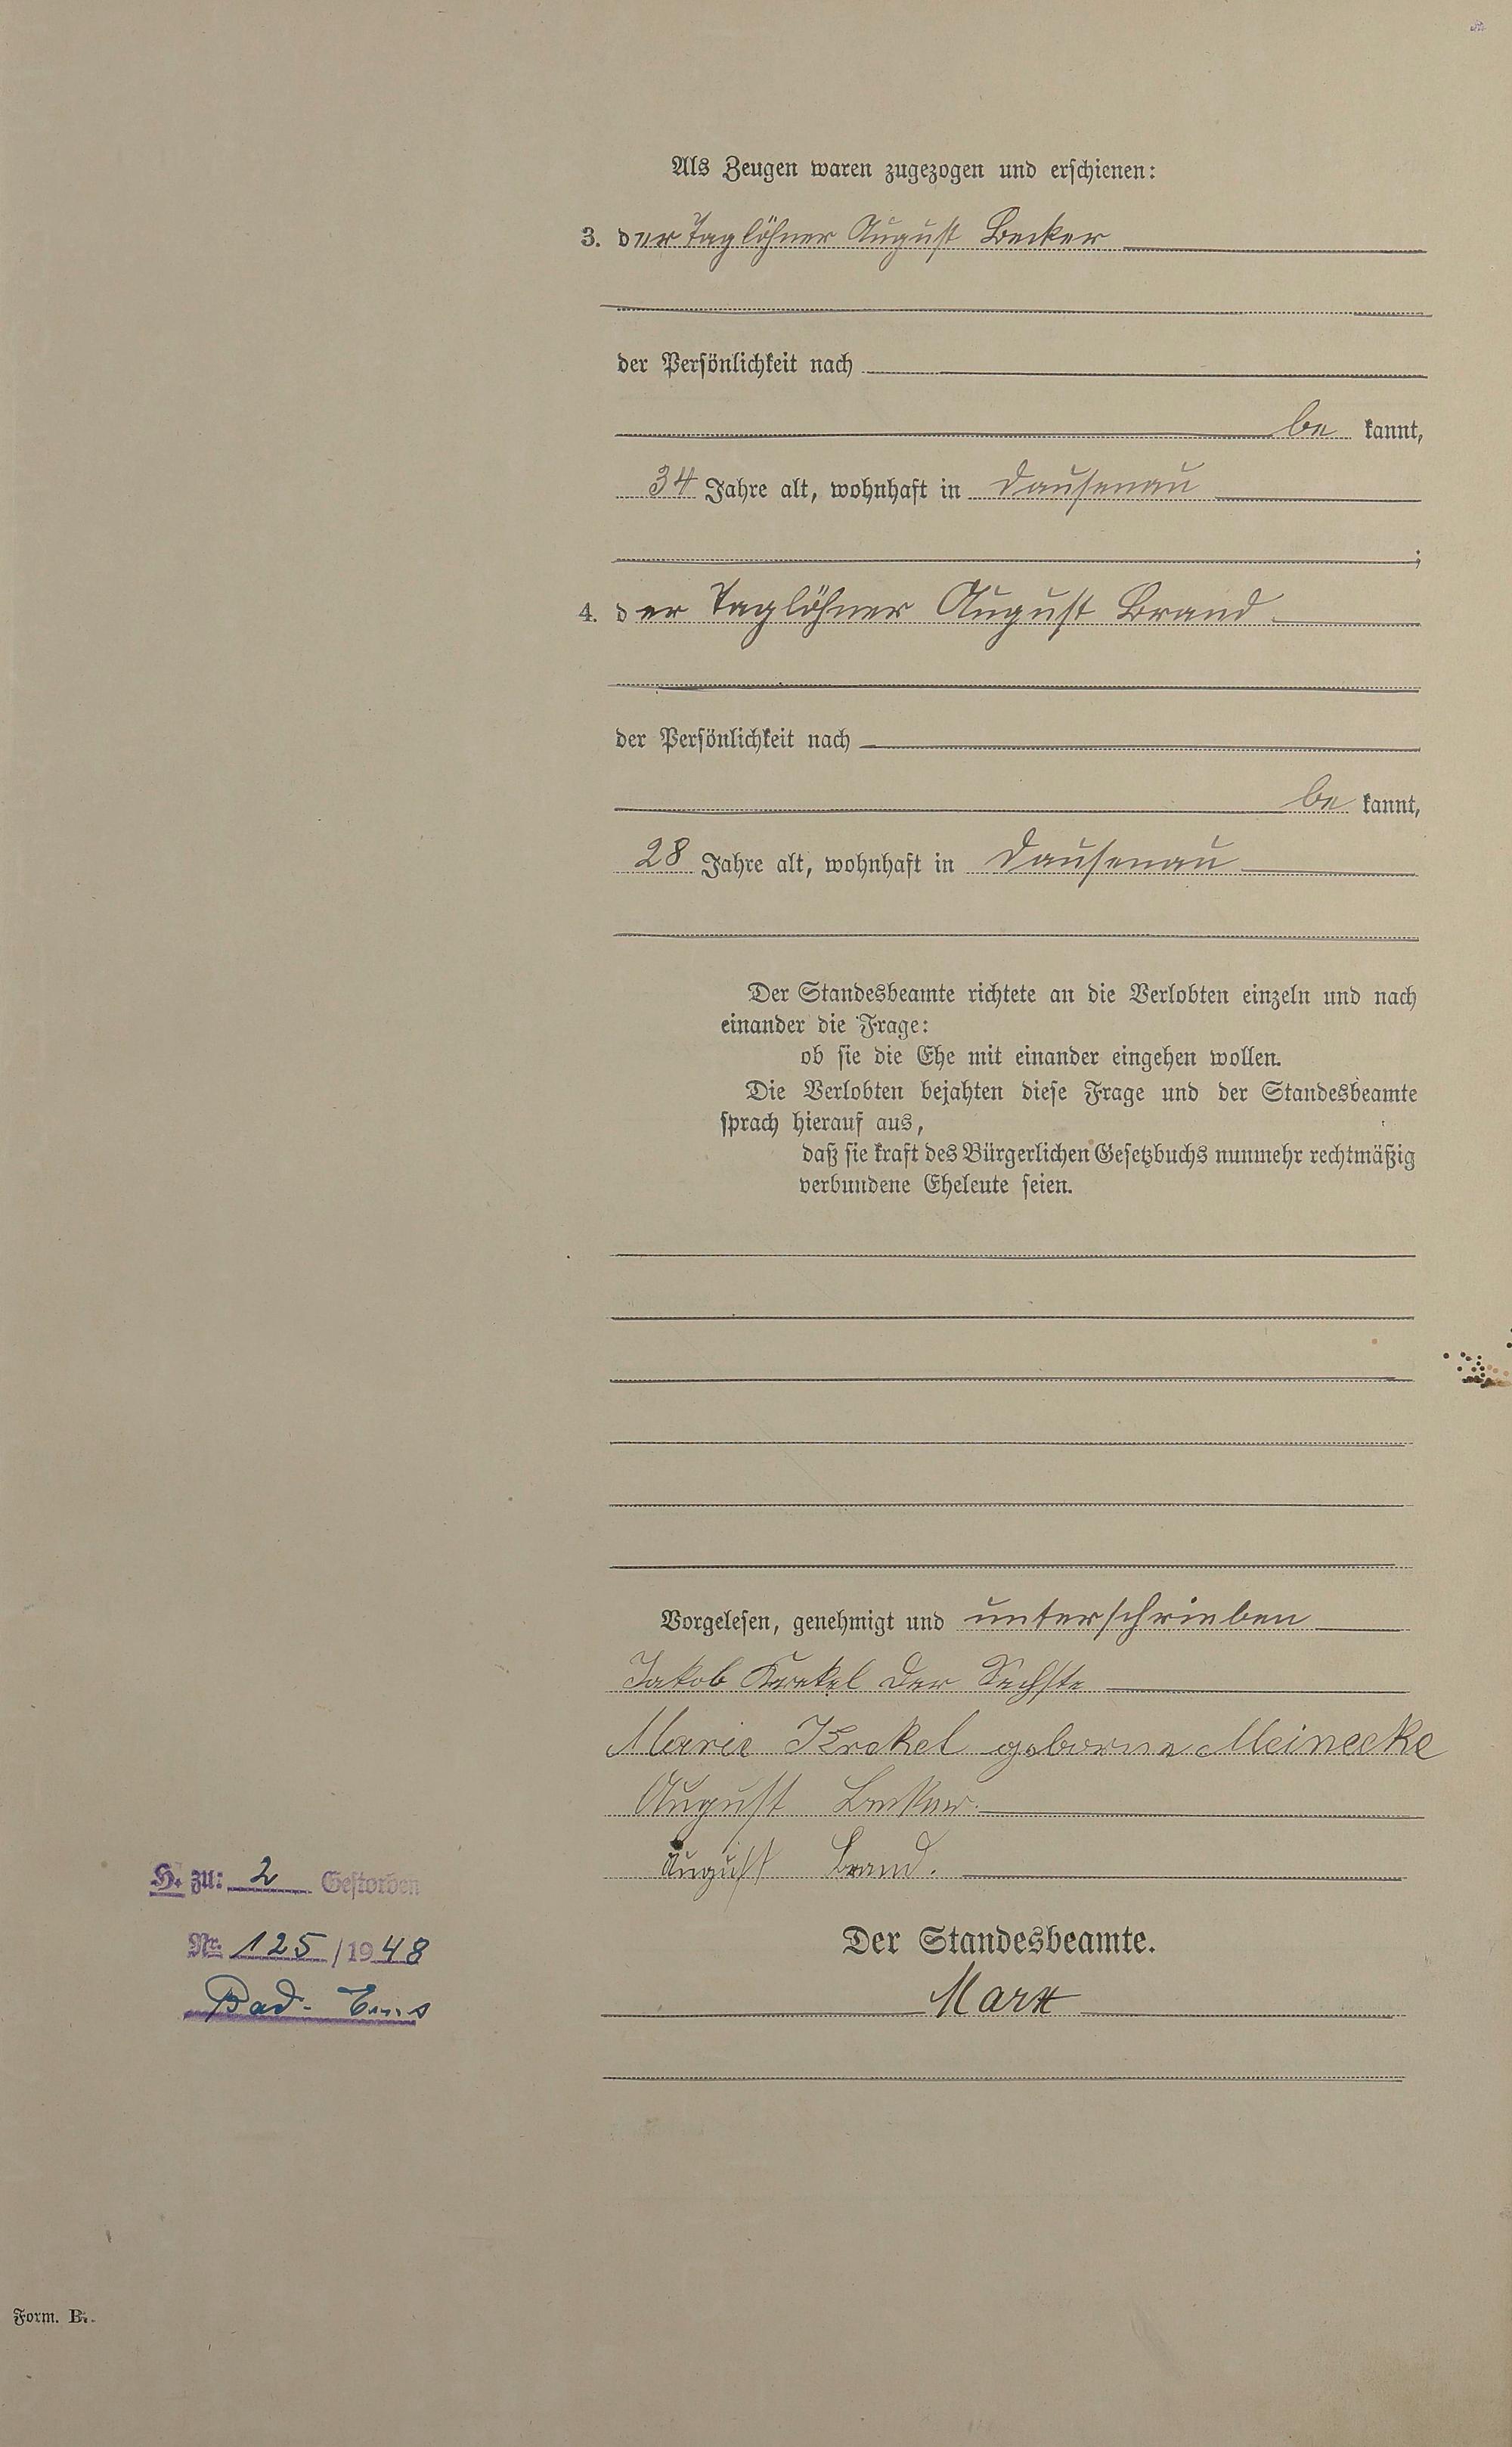 Als Zeugen waren zugezogen und erschienen:
3. der Taglöhner August Becker
der Persönlichkeit nach
be kannt,
34 Jahre alt, wohnhaft in Dausenau
;
4. der Taglöhner August Brand
der Persönlichkeit nach
be kannt,
28 Jahre alt, wohnhaft in Dausenau
Der Standesbeamte richtete an die Verlobten einzeln und nach
einander die Frage:
ob sie die Ehe mit einander eingehen wollen.
Die Verlobten bejahten diese Frage und der Standesbeamte
sprach hierauf aus,
daß sie kraft des Bürgerlichen Gesetzbuchs nunmehr rechtmäßig
verbundene Eheleute seien.
Vorgelesen, genehmigt und unterschrieben
Jakob Krekel der Sechste
Marie Krekel geborene Meinecke
August Becker.
August Brand.
H. zu: 2 Gestorben
Nr. 125/1948
Bad-Ems
Der Standesbeamte.
Marx
Form. B.